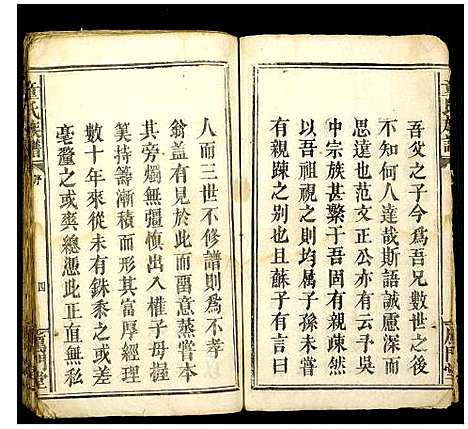 吾父之子今為吾兄數世之後
不知何人達哉斯語誠慮深而
思遠也范文正公亦有云予吳
中宗族甚繁于吾固有親疎然
以吾祖視之則均属子孫未嘗
有親踈之别也且蘇子有言曰
人而三世不修譜則為不孝
翁盖有見於此而留意蒸嘗本
其旁爛無彊慎出入權子母握
筭持籌漸積而形其富厚經理
數十年來從未有銖黍之或差
毫釐之或爽總憑此正直無私
童氏族譜
序
四